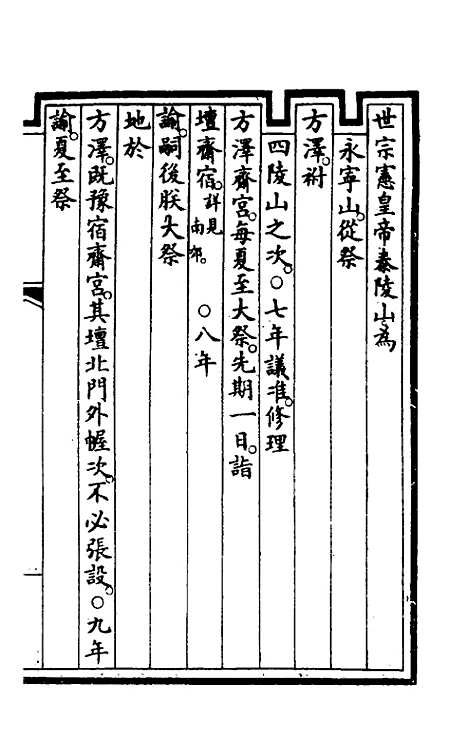 世宗憲皇帝泰陵山為
永寧山。從祭
方澤。祔
四陵山之次。○七年議准。修理
方澤齋宮。每夏至大祭。先期一日。詣
壇齋宿。詳見南郊。○八年
諭。嗣後朕大祭
地於
方澤。既豫宿齋宮。其壇北門外幄次。不必張設。○九年
諭。夏至祭